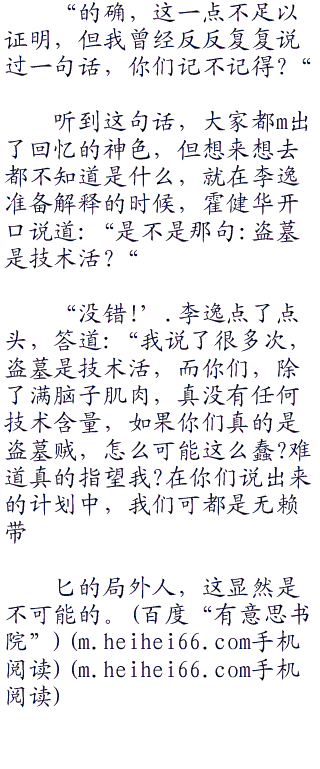 “的确，这一点不足以
证明，但我曾经反反复复说
过一句话，你们记不记得？“
听到这句话，大家都m出
了回忆的神色，但想来想去
都不知道是什么，就在李逸
准备解释的时候，霍健华开
口说道：“是不是那句:盗墓
是技术活？“
“没错!’.李逸点了点
头，答道：“我说了很多次，
盗墓是技术活，而你们，除
了满脑子肌肉，真没有任何
技术含量，如果你们真的是
盗墓贼，怎么可能这么蠢?难
道真的指望我?在你们说出来
的计划中，我们可都是无赖
带
匕的局外人，这显然是
不可能的。(百度“有意思书
院”)(m.heihei66.com手机
阅读)(m.heihei66.com手机
阅读)